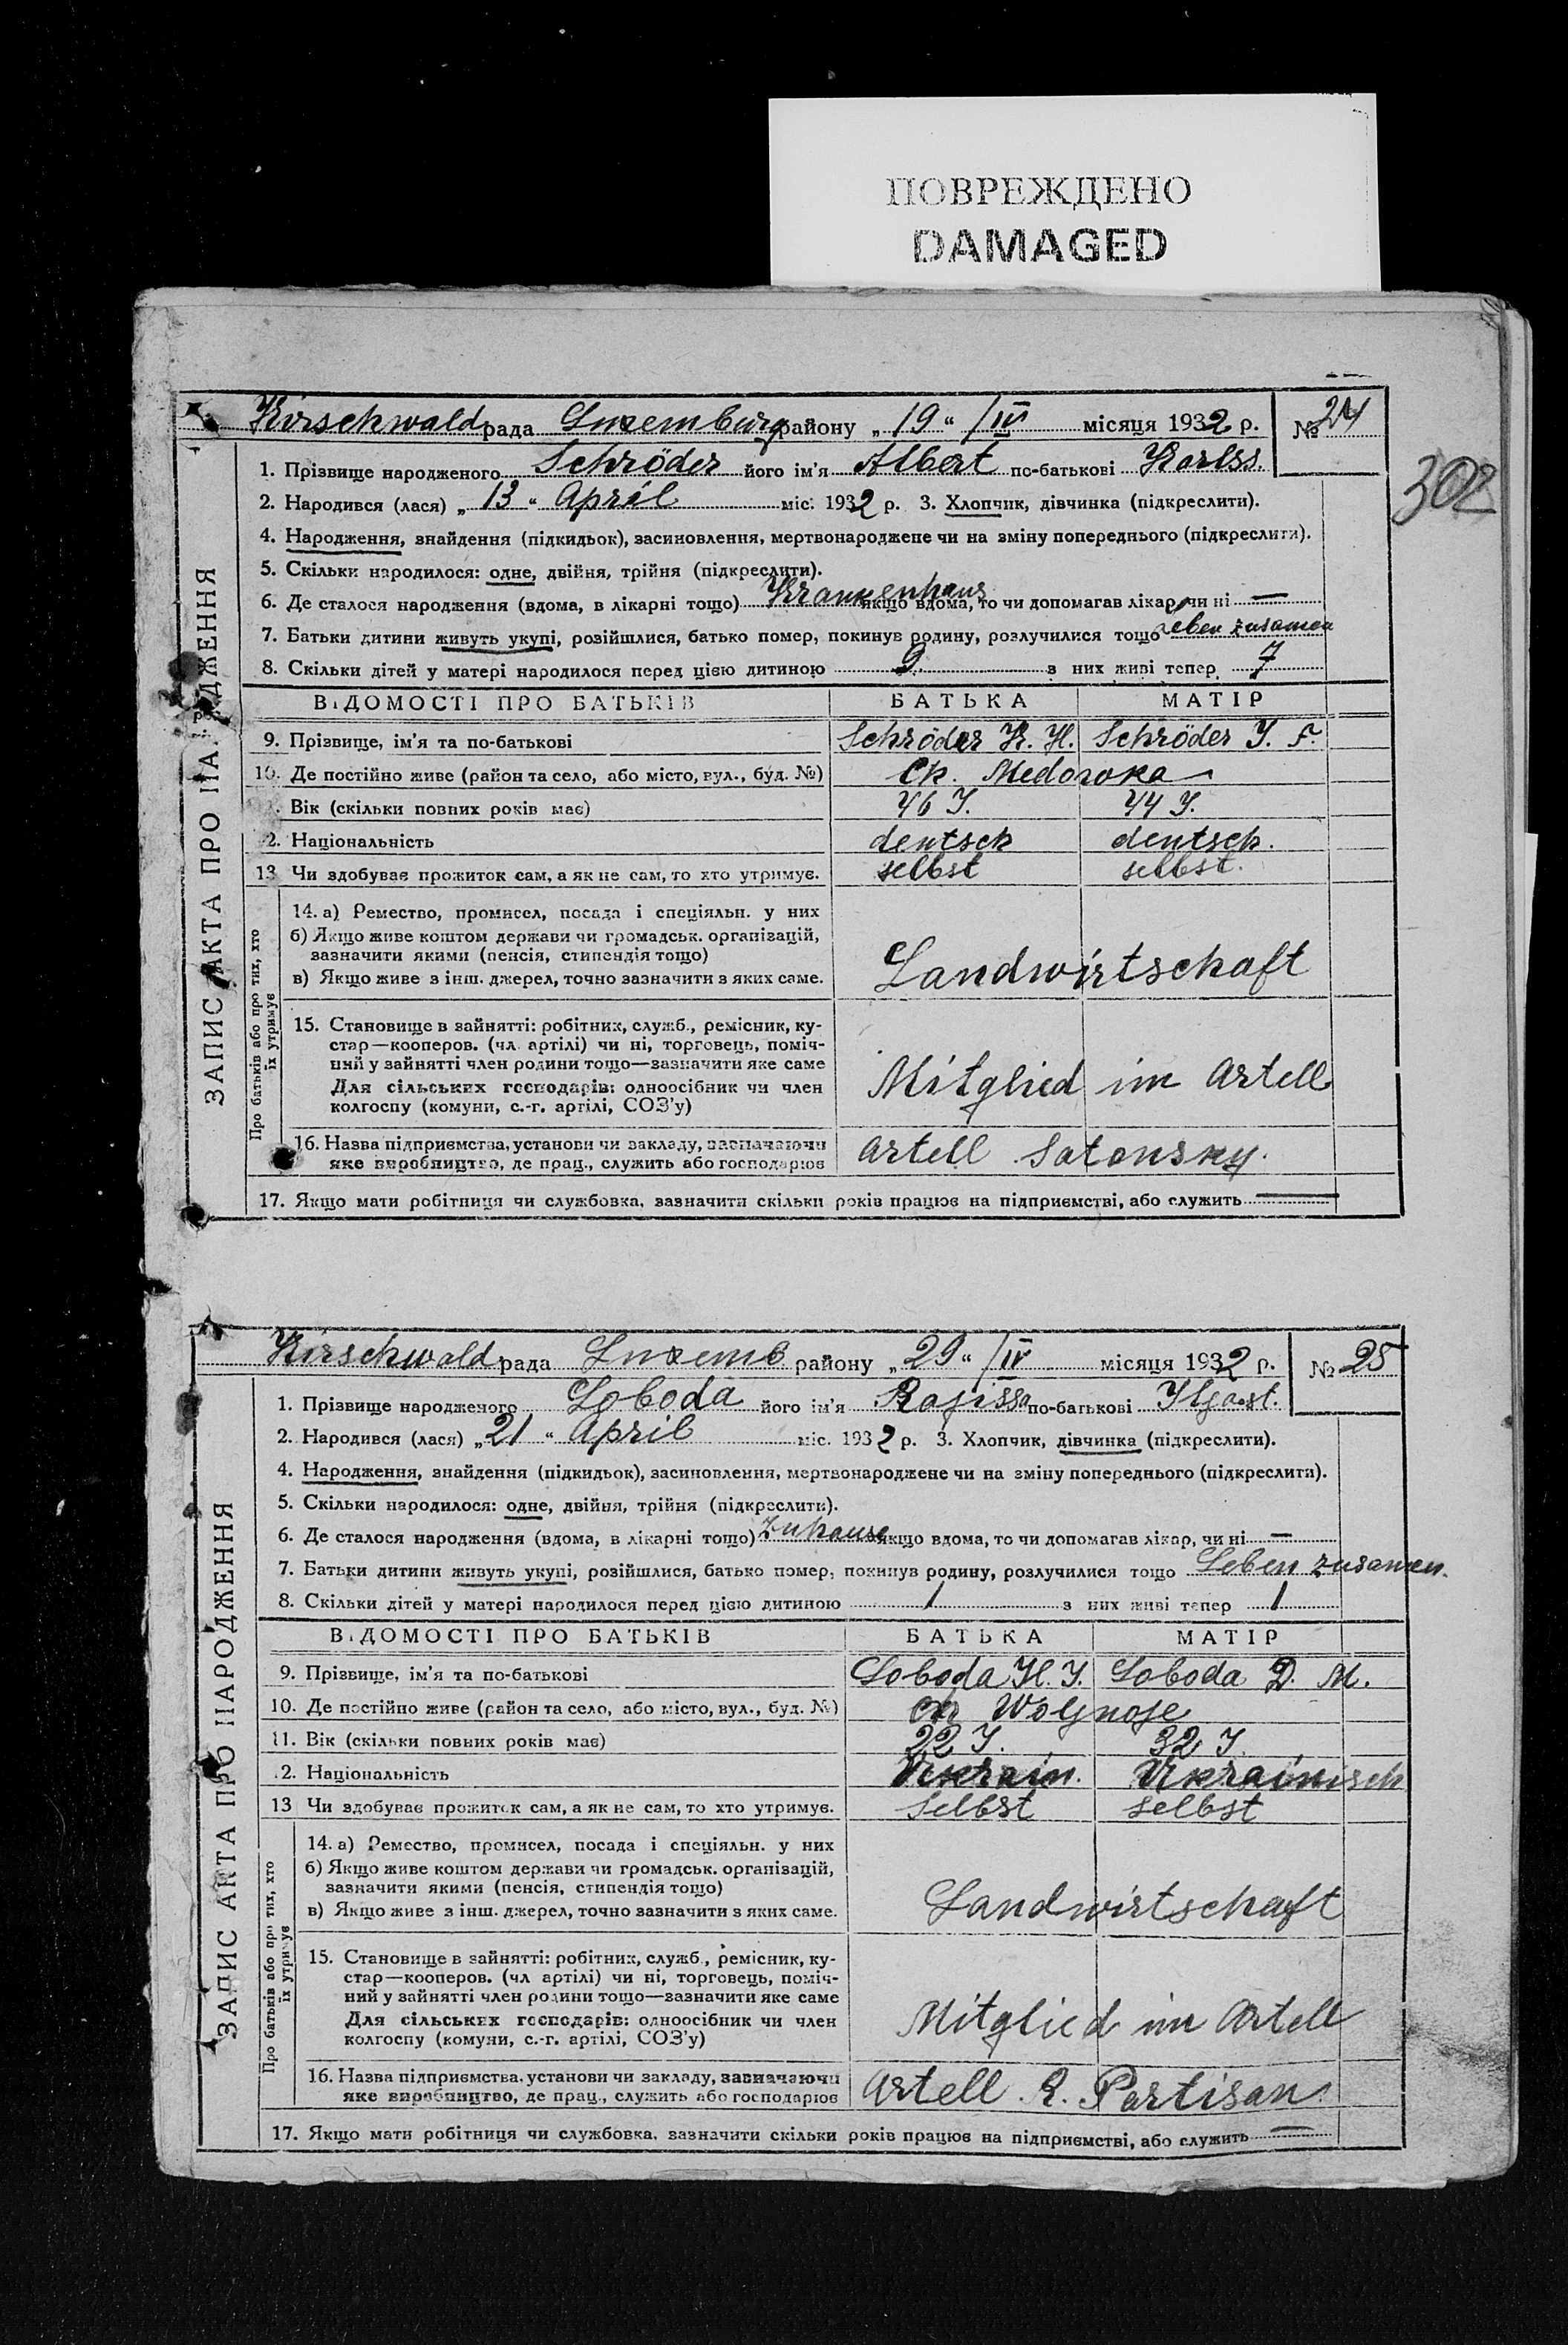 ПОВРЕЖДЕНО
DAMAGED
Kirschwald рада Luxemburg району „19“ /IV місяця 1932 р. № 24
302
1. Прізвище народженого Schröder його ім'я Albert по-батькові Karlss.
2. Народився (лася) „13“ April міс. 1932 р. 3. Хлопчик, дівчинка (підкреслити).
4. Народження, знайдення (підкидьок), засиновлення, мертвонароджене чи на зміну попереднього (підкреслити).
5. Скільки народилося: одне, двійня, трійня (підкреслити).
6. Де сталося народження (вдома, в лікарні тощо) Krankenhaus якщо вдома, то чи допомагав лікар, чи ні —
7. Батьки дитини живуть укупі, розійшлися, батько помер, покинув родину, розлучилися тощо Leben zusamen
8. Скільки дітей у матері народилося перед цією дитиною 9 з них живі тепер 7
ЗАПИС АКТА ПРО НАРОДЖЕННЯ
ВІДОМОСТІ ПРО БАТЬКІВ БАТЬКА МАТІР
9. Прізвище, ім'я та по-батькові Schröder K. H. Schröder J. F.
10. Де постійно живе (район та село, або місто, вул., буд. №) Ch. Medorowka
Вік (скільки повних років має) 46 J. 44 J.
2. Національність deutsch deutsch.
13 Чи здобуває прожиток сам, а як не сам, то хто утримує. selbst selbst.
Про батьків або про тих, хто їх утримує
14. а) Ремество, промисел, посада і спеціяльн. у них
б) Якщо живе коштом держави чи громадськ. організацій,
зазначити якими (пенсія, стипендія тощо)
в) Якщо живе з інш. джерел, точно зазначити з яких саме.
Landwirtschaft
15. Становище в зайнятті: робітник, служб., ремісник, ку-
стар—кооперов. (чл. артілі) чи ні, торговець, поміч-
ний у зайнятті член родини тощо—зазначити яке саме
Для сільських господарів: одноосібник чи член
колгоспу (комуни, с.-г. артілі, СОЗ'у)
Mitglied im Artell
16. Назва підприємства, установи чи закладу, зазначаючи
яке виробництво, де прац., служить або господарює
Artell Satonsky.
17. Якщо мати робітниця чи службовка, зазначити скільки років працює на підприємстві, або служить —
Kirschwald рада Luxemb району „29“ /IV місяця 1932 р. № 25
1. Прізвище народженого Loboda його ім'я Rajissa по-батькові
2. Народився (лася) „21“ April міс. 1932 р. 3. Хлопчик, дівчинка (підкреслити).
4. Народження, знайдення (підкидьок), засиновлення, мертвонароджене чи на зміну попереднього (підкреслити).
5. Скільки народилося: одне, двійня, трійня (підкреслити).
6. Де сталося народження (вдома, в лікарні тощо) Zuhause якщо вдома, то чи допомагав лікар, чи ні —
7. Батьки дитини живуть укупі, розійшлися, батько помер, покинув родину, розлучилися тощо Leben zusamen.
8. Скільки дітей у матері народилося перед цією дитиною 1 з них живі тепер 1
ЗАПИС АКТА ПРО НАРОДЖЕННЯ
ВІДОМОСТІ ПРО БАТЬКІВ БАТЬКА МАТІР
9. Прізвище, ім'я та по-батькові Loboda H. J. Loboda D. M.
10. Де постійно живе (район та село, або місто, вул., буд. №)
11. Вік (скільки повних років має) 22 J. 32 J.
2. Національність Ukrain. Ukrainisch
13 Чи здобуває прожиток сам, а як не сам, то хто утримує. Selbst selbst
Про батьків або про тих, хто їх утримує
14. а) Ремество, промисел, посада і спеціяльн. у них
б) Якщо живе коштом держави чи громадськ. організацій,
зазначити якими (пенсія, стипендія тощо)
в) Якщо живе з інш. джерел, точно зазначити з яких саме.
Landwirtschaft
15. Становище в зайнятті: робітник, служб., ремісник, ку-
стар—кооперов. (чл артілі) чи ні, торговець, поміч-
ний у зайнятті член родини тощо—зазначити яке саме
Для сільських господарів: одноосібник чи член
колгоспу (комуни, с.-г. артілі, СОЗ'у)
Mitglied im Artell
16. Назва підприємства, установи чи закладу, зазначаючи
яке виробництво, де прац., служить або господарює
Artell R. Partisan
17. Якщо мати робітниця чи службовка, зазначити скільки років працює на підприємстві, або служить —